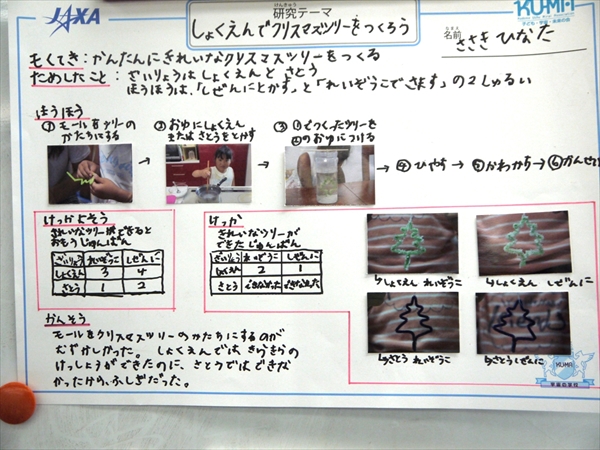 JAXA
けんきゅう
研究テーマ
しょくえんでクリスマスツリーをつくろう
KUMA
なまえ
名前 ささき ひなた
もくてき：かんたんにきれいなクリスマスツリーをつくる
ためしたこと：ざいりょうはしょくえんと さとう
ほうほうは、「しぜんにとかす」と「れいぞうこでさます」の2しゅるい
ほうほう
①モールをツリーのかたちにする
→
②おゆにしょくえんまたはさとうをとかす
→
③①でつくったツリーを②のおゆにつける
→④ひやす→⑤かわかす→⑥かんせい
けっかよそう
きれいなツリーができると
おもうじゅんばん
ざいりょう れいぞうこ しぜんに
しょくえん 3 4
さとう 1 2
けっか
きれいなツリーが
できたじゅんばん
ざいりょう れいぞうこ しぜんに
しょくえん 2 1
さとう できなかった できなかった
↳しょくえん れいぞうこ
↳しょくえん しぜんに
↳さとう れいぞうこ
↳さとう しぜんに
かんそう
モールをクリスマスツリーのかたちにするのが
むずかしかった。しょくえんでは、きらきらの
けっしょうができたのに、さとうではできな
かったけの、ふしぎだった。
KUMA